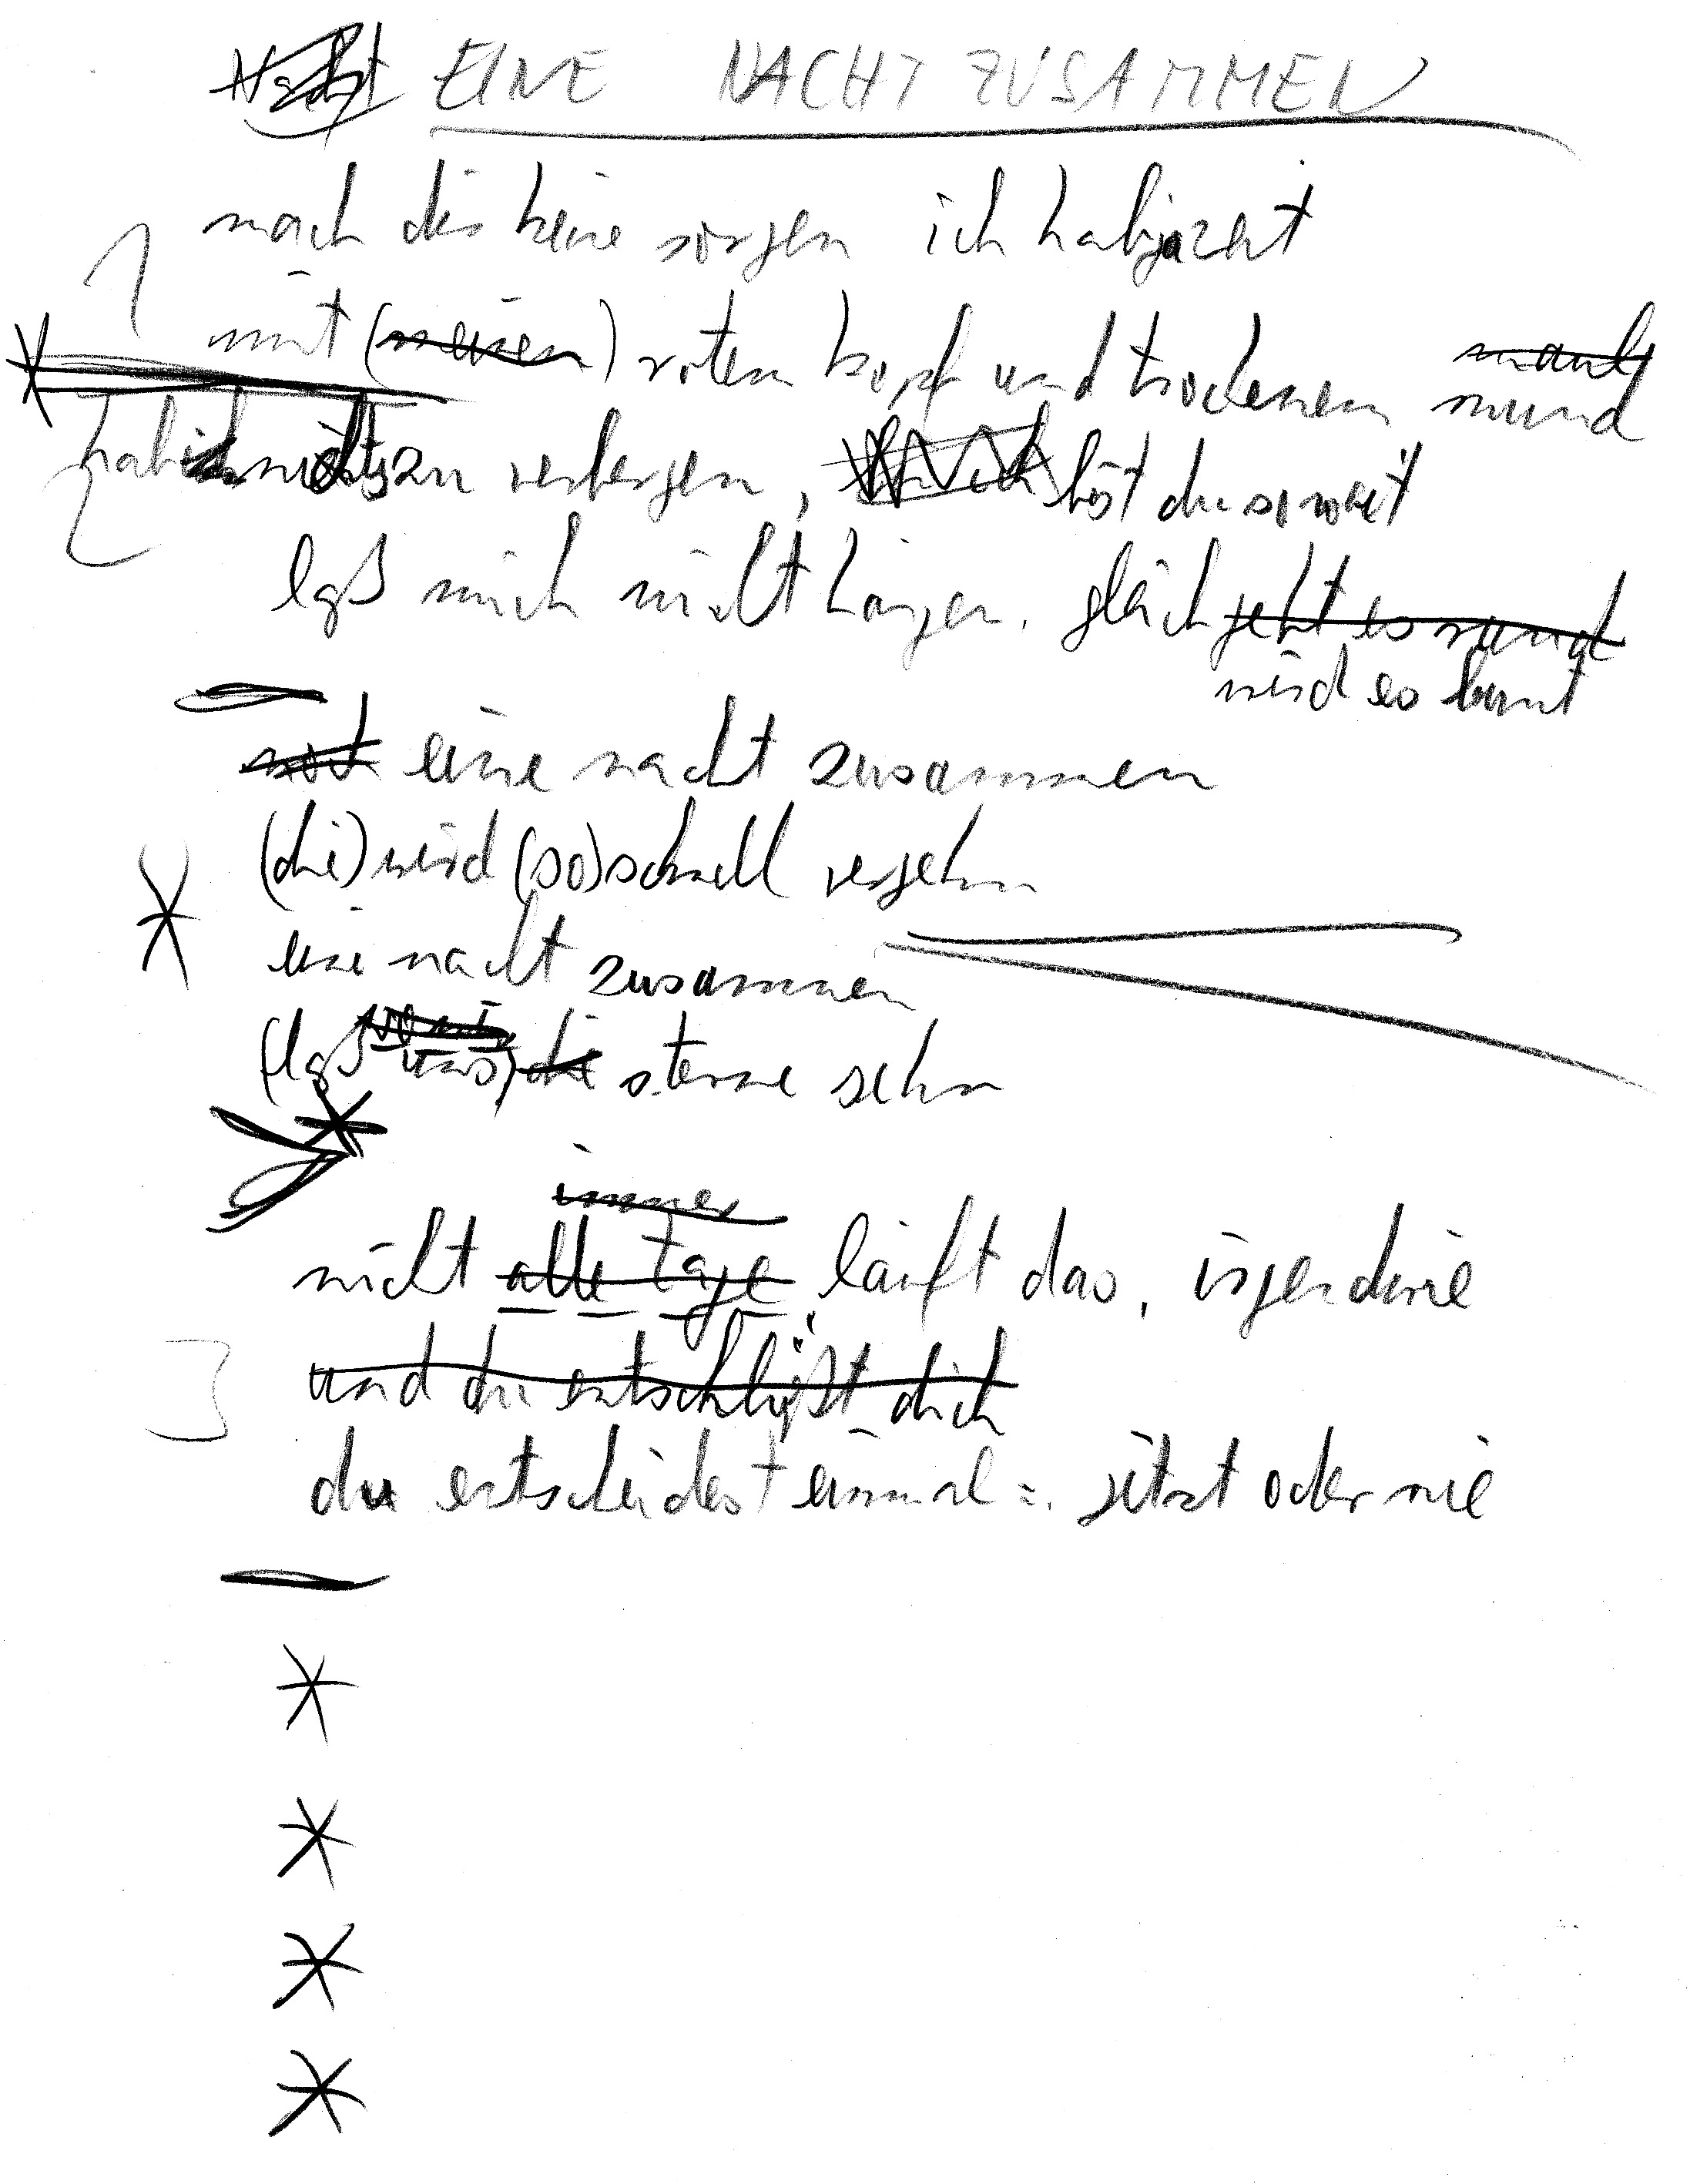 Nacht EINE NACHT ZUSAMMEN
mach dir keine sorgen ich hab ja zeit
mit (meinen) rotem kopf und trockenem maul
mund
hab ich nichts zu verbergen, bist du soweit
laß mich nicht hängen. gleich geht es rund
wird es bunt
noch eine nacht zusammen
(die) wird (so) schnell vergehn
eine nacht zusammen
(laß uns) die sterne sehn
immer
nicht alle tage läuft das, irgendwie
und du entschließt dich
du entscheidest einmal: jetzt oder nie